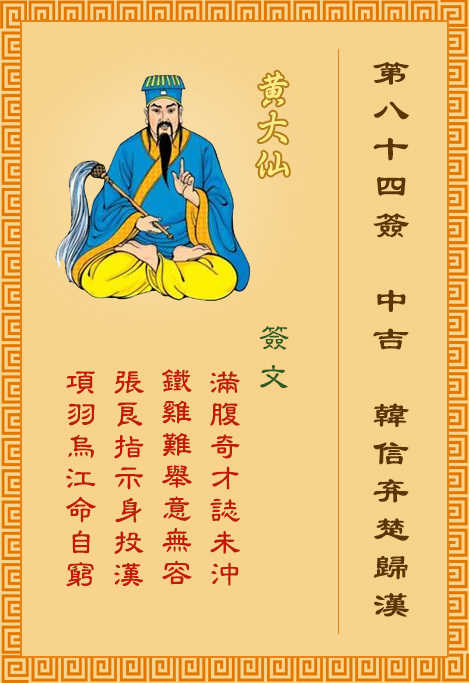 第八十四簽 中吉 韓信弃楚歸漢
黄大仙
簽文
滿腹奇才誌未沖
鐵雞難舉意無容
張良指示身投漢
項羽烏江命自窮